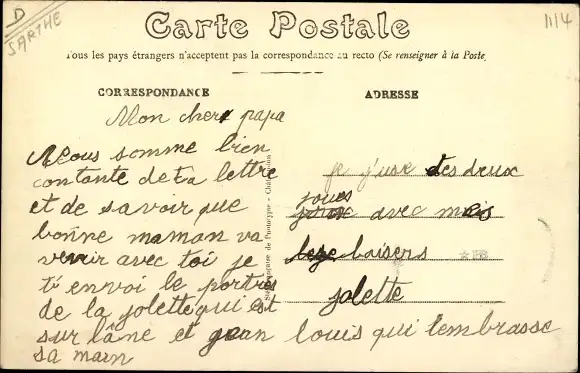 D
SARTHE
1114
Carte Postale
Tous les pays étrangers n'acceptent pas la correspondance au recto (Se renseigner à la Poste
CORRESPONDANCE
Mon cher papa
Nous somme bien
contante de ta lettre
et de savoir que
bonne maman va
venir avec toi je
t'i envoi le portres
de la jolette qui est
sur lâne et gean louis qui tembrasse
sa main
ADRESSE
je j'use des deux
joues
avec mes
baisers
jolette